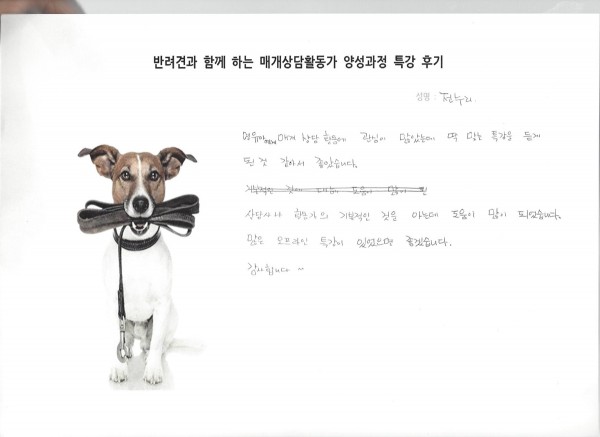 반려견과 함께 하는 매개상담활동가 양성과정 특강 후기
성명 : 정누리.
매개 상담 활동에 관심이 많았는데 딱 맞는 특강을 듣게
된 것 같아서 좋았습니다.
상담사나 활동가의 기본적인 것을 아는데 도움이 많이 되었습니다.
많은 오프라인 특강이 있었으면 좋겠습니다.
감사합니다 ~